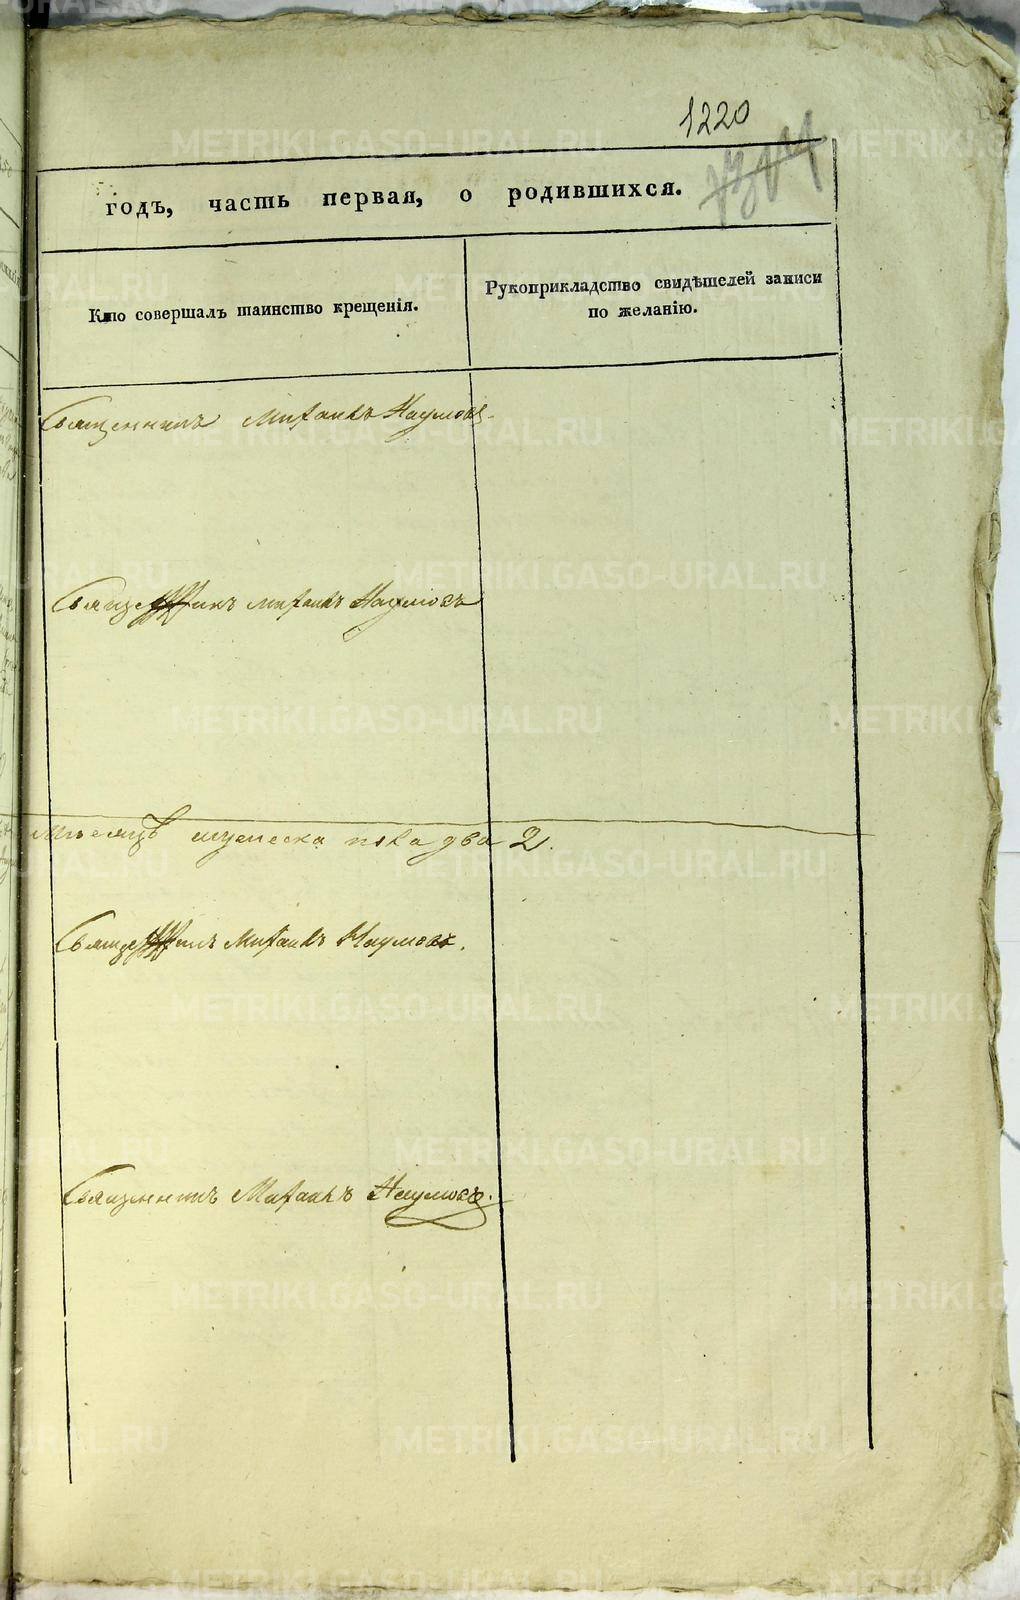 1220
годъ, часть первая, о родившихся.
Кто совершалъ таинство крещенія.
Рукоприкладство свидѣтелей записи
по желанію.
Священникъ Михаилъ Наумовъ
Священникъ Михаилъ Наумовъ
мужеска пола два 2.
Священникъ Михаилъ Наумовъ.
Священникъ Михаилъ Наумовъ.
METRIKI.GASO-URAL.RU